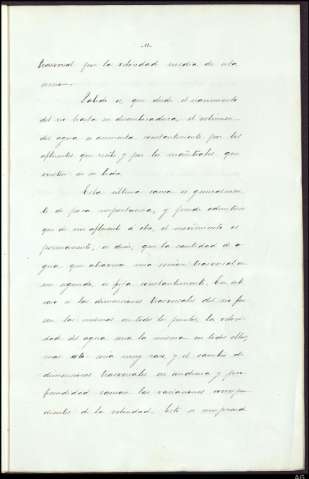 -11-
tranversal por la velocidad media de esta
misma.
Sabido es, que desde el nacimiento
del rio hasta su desembocadura, el volumen
del agua se aumenta constantemente por los
afluentes que recibe y por los manantiales que
existen en su lecho.
Esta última causa es generalmen
te de poca importancia, y puede admitirse
que de un afluente á otro, el movimiento es
permanente, es decir, que la cantidad de a-
gua que atraviesa una sección tranversal en
un segundo, es fija constantemente. En es
caso si las dimensiones tranversales del rio fue
sen las mismas en todos los puntos, la veloci-
dad del agua seria la misma en todos ellos,
mas esto seria muy raro y el cambio de
dimensiones tranversales en anchura y pro-
fundidad causan las variaciones correspon-
dientes de la velocidad. Esto se comprende